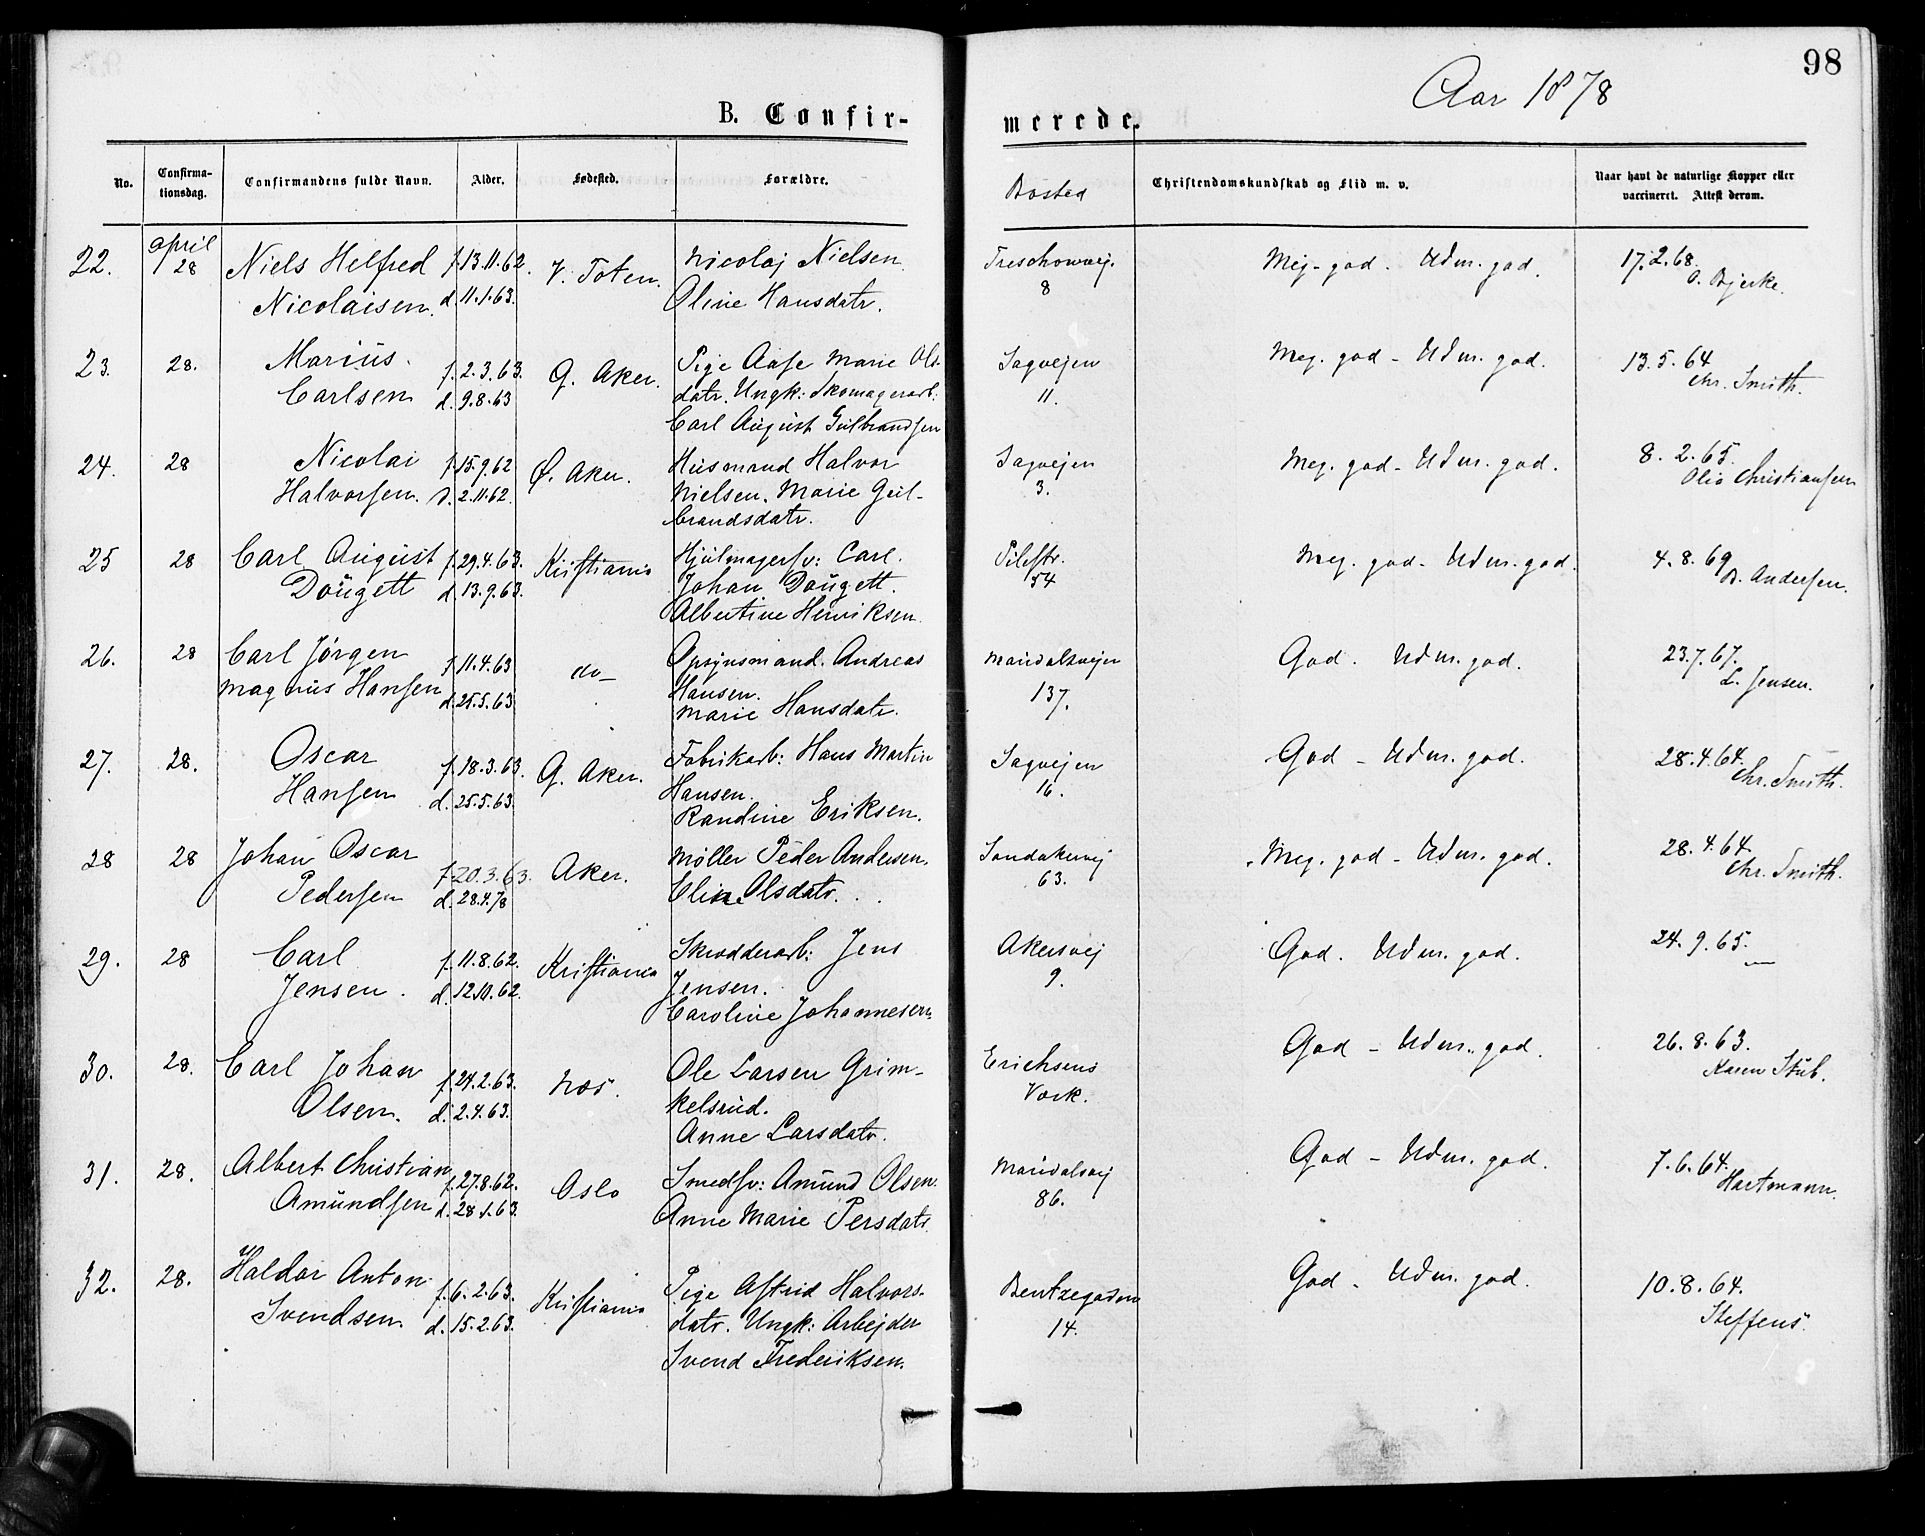 98
Aar 1878
B. Confir-
merede.
No.
Confirma-
tionsdag.
Confirmandens fulde Navn.
Alder.
Fødested.
Forældre.
Bosted
Christendomskundskab og Flid m. v.
Naar havt de naturlige Kopper eller
vaccineret. Attest derom.
22. april 28 Niels Helfred f. 13.11.62. V. Toten. Nicolaj Nielsen. Treschowvej. Meg. god. Udm. god. 17.2.68.
Nicolaisen. d. 11.1.63. Oline Hansdatr. 8 O. Bjerke.
23. 28. Marius f. 2.3.63. G. Aker. Pige Aase Marie Ols- Sagvejen Meg. god - Udm. god. 13.5.64
Carlsen d. 9.8.63 datr. Ungk: Skomagerarb: 11. Chr. Smith.
Carl August Gulbrandsen
24. 28 Nicolai f. 15.9.62 Ø. Aker. Husmand Halvor Sagvejen Meg. god - Udm. god. 8.2.65.
Halvorsen. D. 2.11.62. Nielsen. Marie Gul- 3. Olia Christiansen
brandsdatr.
25 28 Carl August f. 29.4.63. Kristiania Hjulmagersv: Carl. Pilestr. Meg. god - Udm. god. 4.8.69
Dougett d. 13.9.63. Johan Dougett. 54 B. Andersen.
Albertine Henriksen.
26. 28 Carl Jørgen f. 11.4.63 do_ Opsynsmand. Andreas Maridalsvejen God. Udm. god. 23.7.67.
Magnus Hansen d. 25.5.63 Hansen. 137. L. Jensen.
Marie Hansdatr.
27. 28. Oscar f. 18.3.63. G. Aker. Fabrikarb: Hans Martin Sagvejen God - Udm. god. 28.4.64.
Hansen d. 25.5.63. Hansen. 16. Chr. Smith.
Randine Eriksen.
28 28 Johan Oscar f. 20.3.63. Aker. Møller Peder Andersen. Sandakervej Meg. god - Udm. god. 28.4.64.
Pedersen d. 28.4.78 Eline Olsdatr. 63. Chr. Smith.
29. 28 Carl f. 11.8.62. Kristiania Skrædderarb: Jens Akersvej God. Udm. god. 24.9.65.
Jensen. d. 12.10.62. Jensen. 9. —
Caroline Johannesen.
30. 28. Carl Johan f. 24.2.63. Næs. Ole Larsen Grim- Erichsens God - Udm. god. 26.8.63.
Olsen. d. 2.4.63. kelsrud. Værk. Karen Stub.
Anne Larsdatr.
31. 28. Albert Christian f. 27.8.62. Oslo Smedsv: Amund Olsen. Maridalsvej God - Udm. god. 7.6.64.
Amundsen d. 28.1.63. Anne Marie Persdatr. 86. Hartmann.
32. 28. Haldor Anton f. 6.2.63. Kristiania Pige Astrid Halvors- Bentzegaden God - Udm. god. 10.8.64.
Svendsen. d. 15.2.63. datr. Ungk: Arbejder 14. Steffens.
Svend Frederiksen.